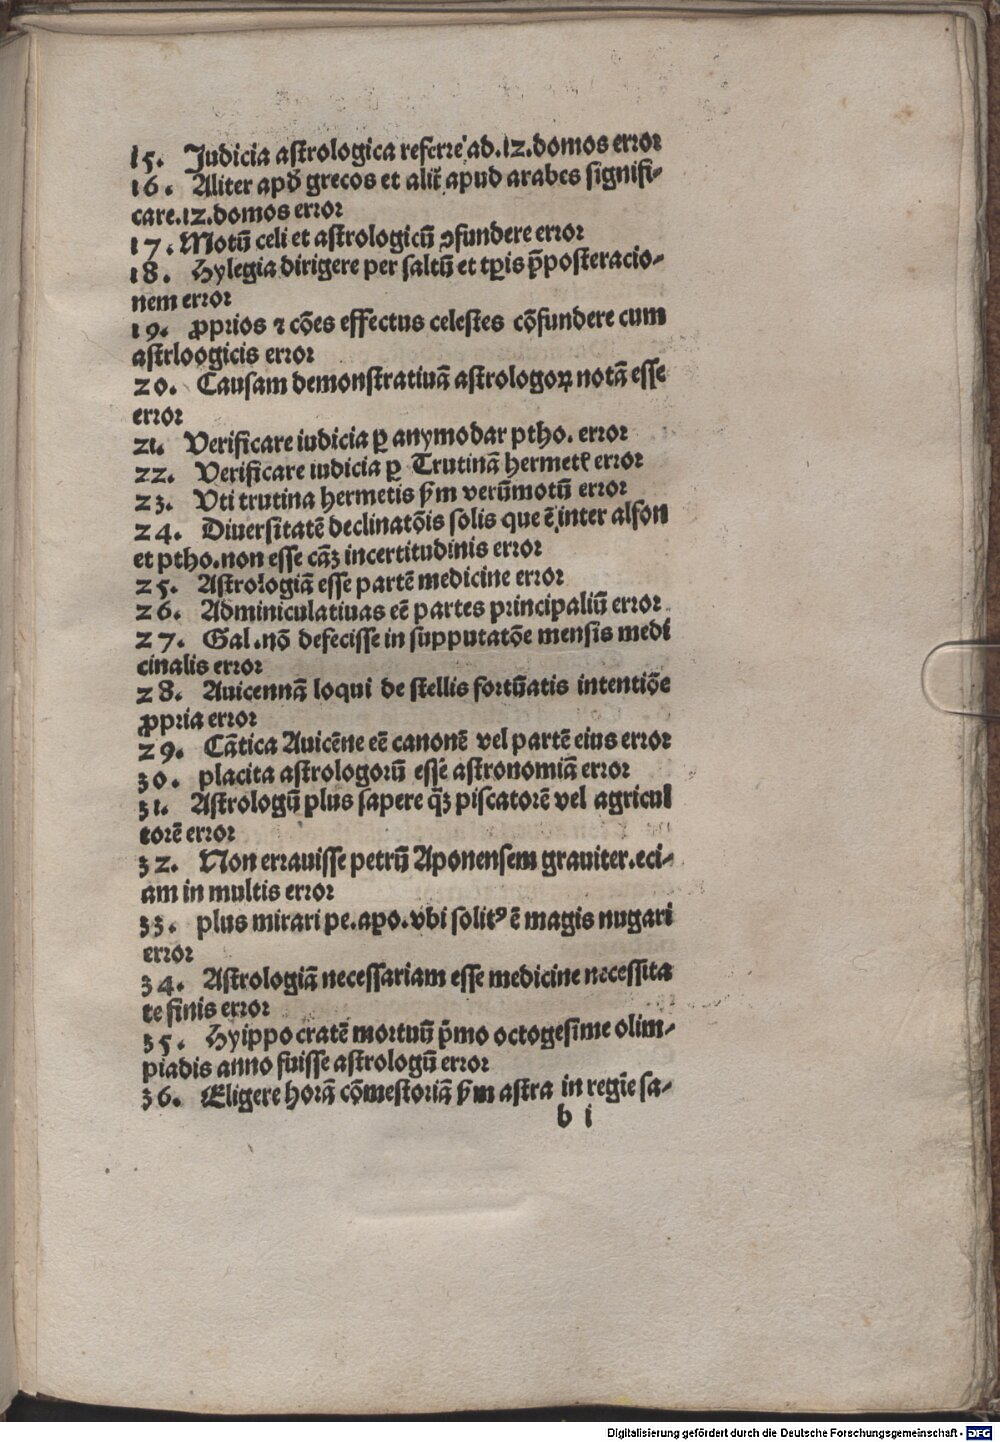 15. Judicia astrologica referre ad.12.domos error
16. Aliter apđ grecos et alit̃ apud arabes signifi-
care.12.domos error
17. Motū celi et astrologicū ꝯfundere error
18. Hylegia dirigere per saltū et tꝑis p̄posteracio-
nem error
19. ꝓprios ⁊ cōes effectus celestes cōfundere cum
astrloogicis error
20. Causam demonstratiuā astrologoꝝ notā esse
error
21. Verificare iudicia ꝑ anymodar ptho. error
22. Verificare iudicia ꝑ Trutinā hermetꝭ error
23. Vti trutina hermetis ẜm verūmotū error
24. Diuersitatē declinatōis solis que ē inter alfon
et ptho.non esse cāꝫ incertitudinis error
25. Astrologiā esse partē medicine error
26. Adminiculatiuas eē partes principaliū error
27. Gal.nō defecisse in supputatōe mensis medi
cinalis error
28. Auicennā loqui de stellis fortūatis intentiōe
ꝓpria error
29. Cātica Auicēne eē canonē vel partē eius error
30. placita astrologorū esse astronomiā error
31. Astrologū plus sapere q̄ꝫ piscatorē vel agricul
torē error
32. Non errauisse petrū Aponensem grauiter.eci-
am in multis error
33. plus mirari pe.apo.vbi solitꝰ ē magis nugari
error
34. Astrologiā necessariam esse medicine necessita
te finis error
35. Hyippocratē mortuū p̄mo octogesime olim-
piadis anno fuisse astrologū error
36. Eligere horā cōmestoriā ẜm astra in regīe sa-
b i
Digitalisierung gefördert durch die Deutsche Forschungsgemeinschaft - DFG